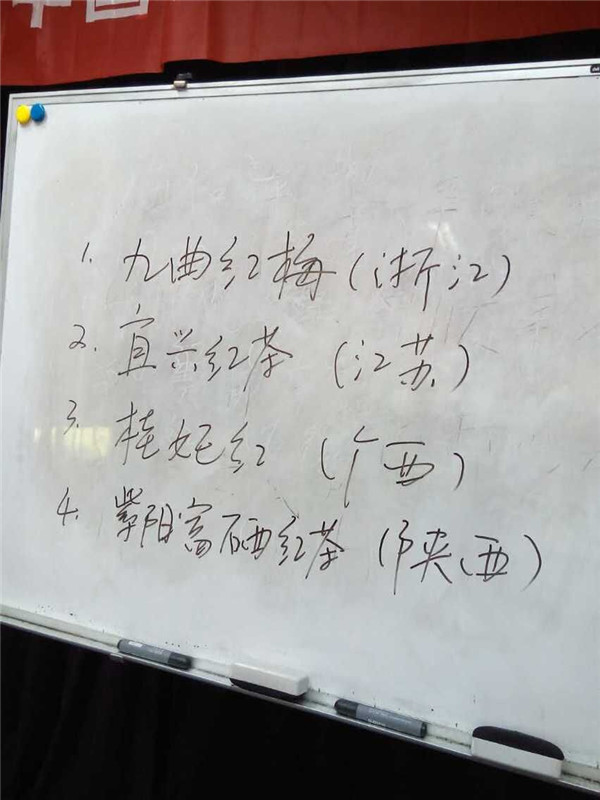 中国
1. 九曲红梅(浙江)
2. 宜兴红茶 (江苏)
3. 桂妃红 (广西)
4. 紫阳富硒红茶 (陕西)